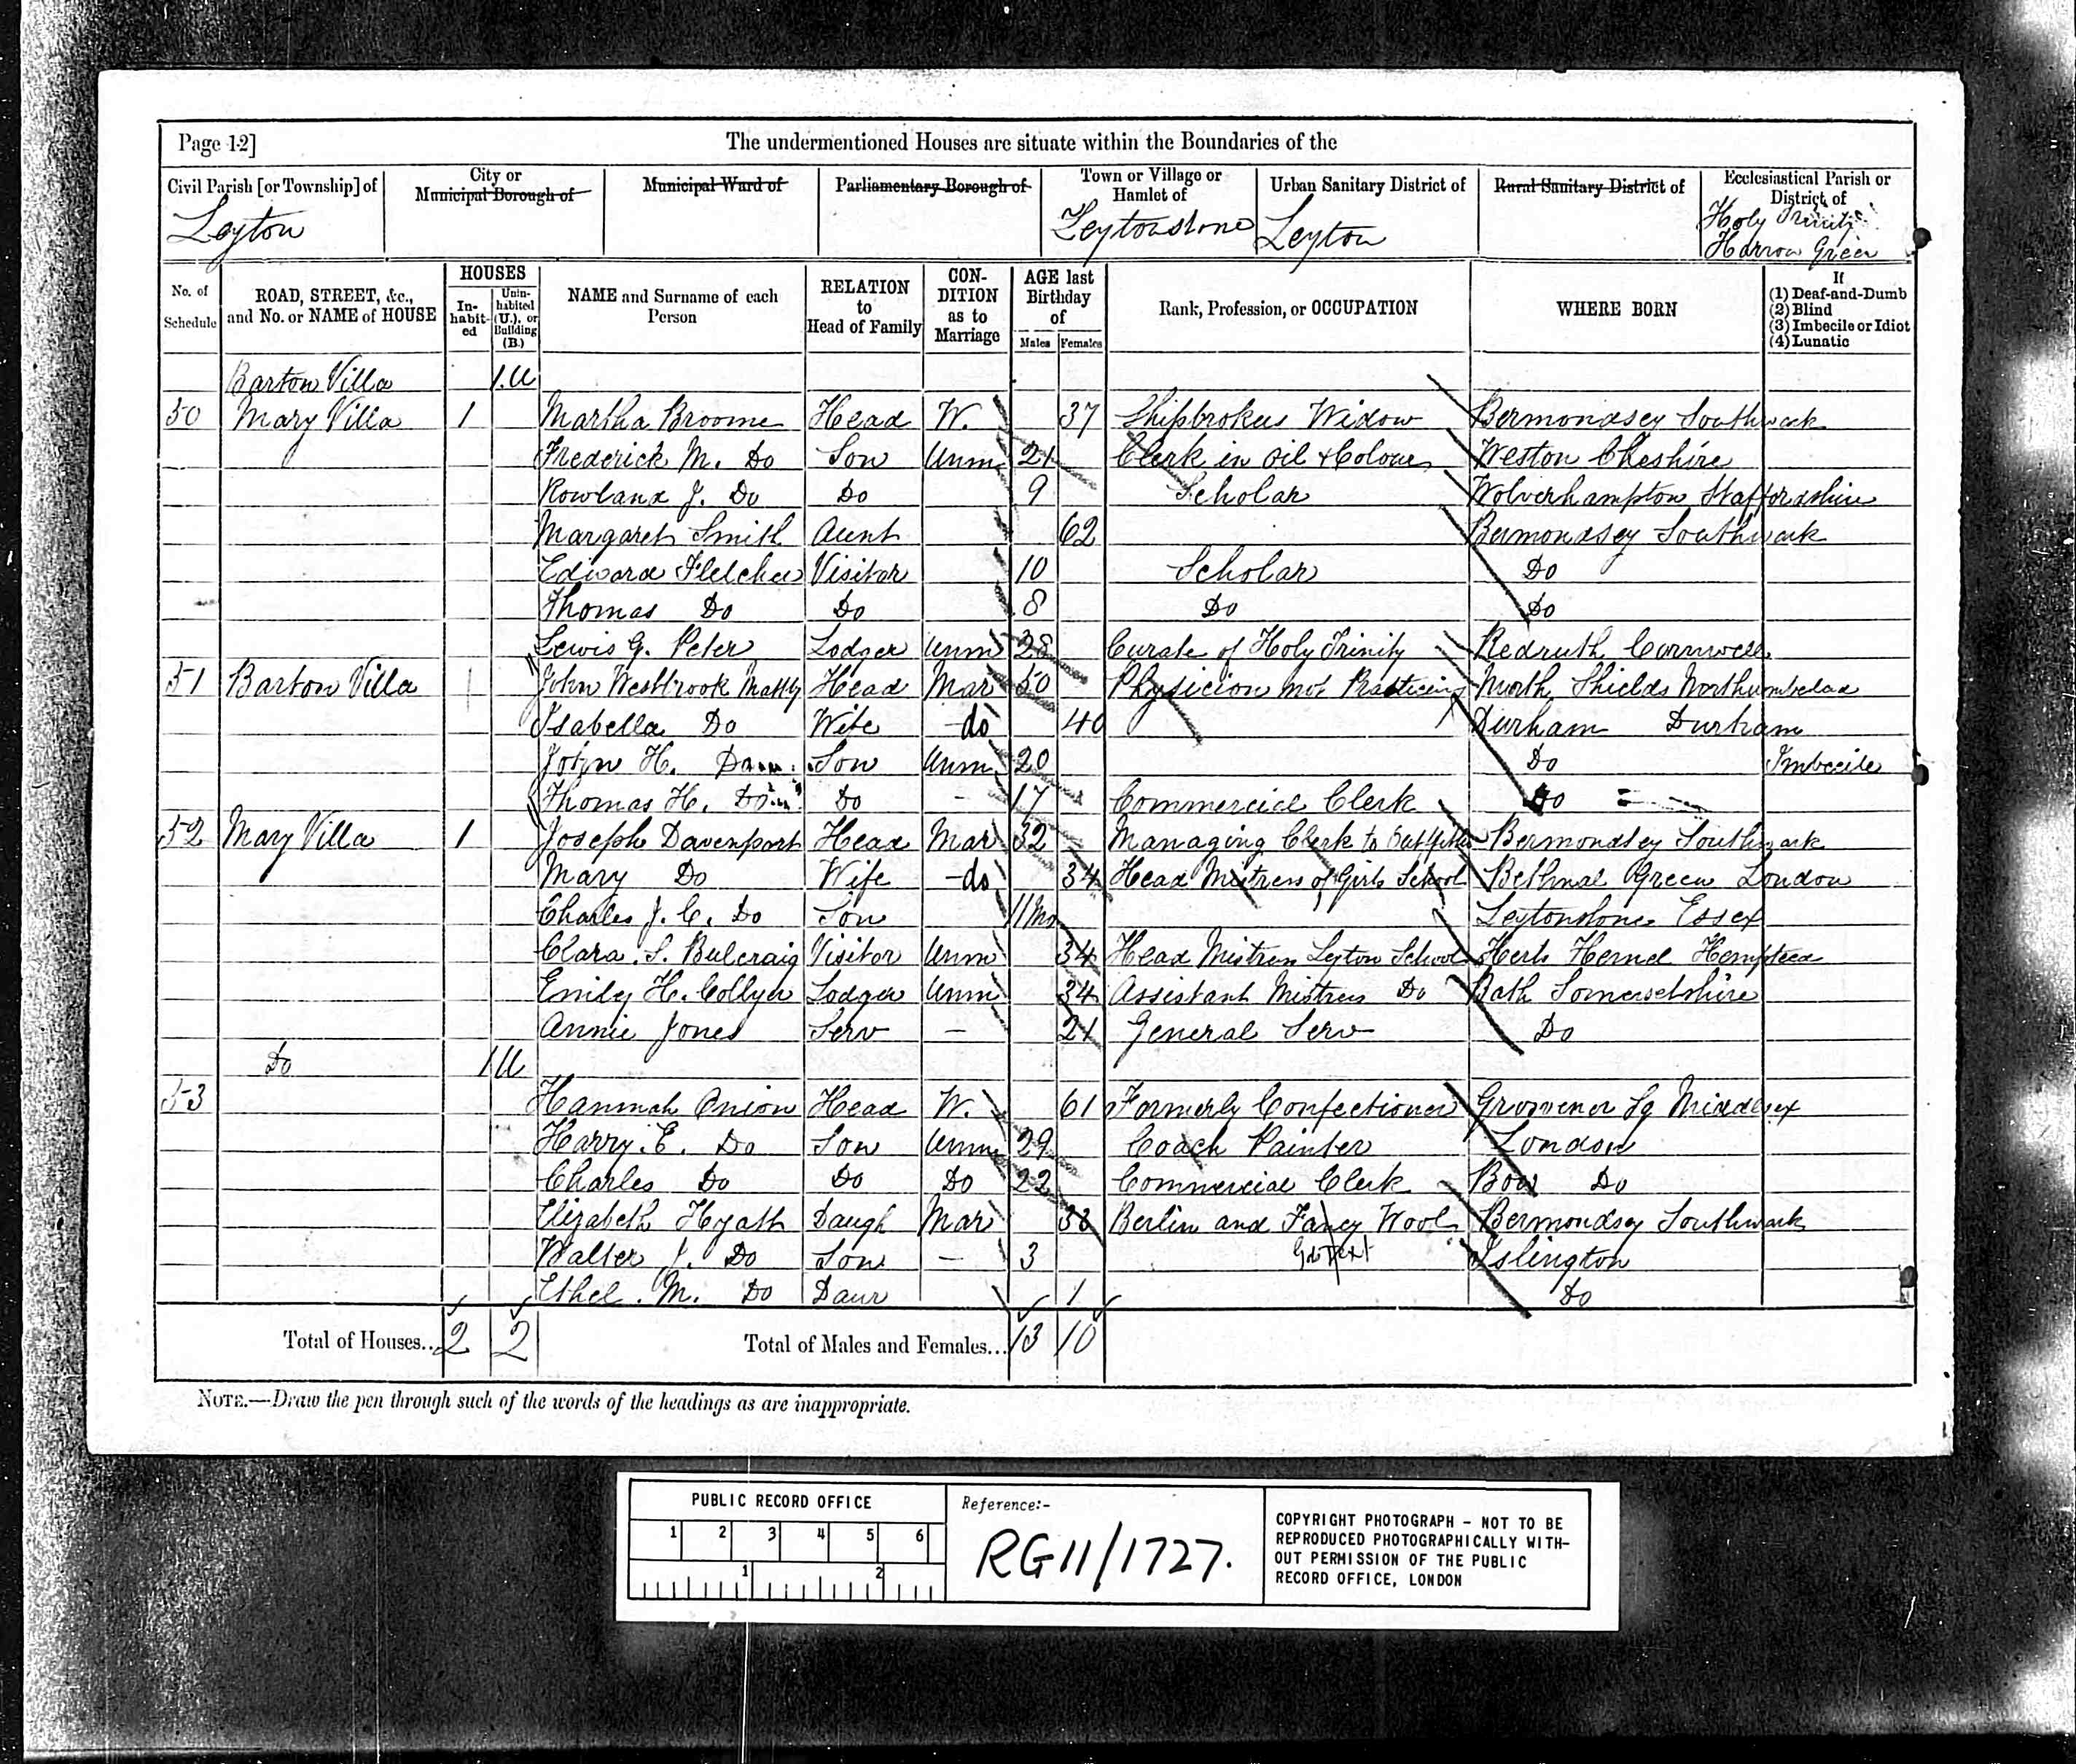 Page 12] The undermentioned Houses are situate within the Boundaries of the
Civil Parish [or Township] of City or Municipal Borough of Municipal Ward of Parliamentary Borough of Town or Village or Hamlet of Urban Sanitary District of Rural Sanitary District of Ecclesiastical Parish or District of
Leyton Leytonstone Leyton Holy Trinity Harrow Green
No. of Schedule ROAD, STREET, &c., and No. or NAME of HOUSE HOUSES Inhabited Uninhabited (U.), or Building (B.) NAME and Surname of each Person RELATION to Head of Family CONDITION as to Marriage AGE last Birthday of Males Females Rank, Profession, or OCCUPATION WHERE BORN If (1) Deaf-and-Dumb (2) Blind (3) Imbecile or Idiot (4) Lunatic
Barton Villa 1.U
50 Mary Villa 1 Martha Broome Head W. 37 Shipbrokers Widow Bermondsey Southwark
Frederick M. Do Son Unm 21 Clerk in Oil & Colours Weston Cheshire
Rowland J. Do Do 9 Scholar Wolverhampton Staffordshire
Margaret Smith Aunt 62 Bermondsey Southwark
Edward Fletcher Visitor 10 Scholar Do
Thomas Do Do 8 Do Do
Lewis G. Peter Lodger Unm 28 Curate of Holy Trinity Redruth Cornwell
51 Barton Villa 1 John Westbrook Head Mar 50 Physician not Practicing North Shields Northumbelad
Isabella Do Wife do 40 Durham Durham
John H. Do Son Unm 20 Do Imbecile
Thomas H. Do Do - 17 Commercial Clerk Do
52 Mary Villa 1 Joseph Davenport Head Mar 32 Managing Clerk to Bermondsey Southwark
Mary Do Wife do 34 Head Mistress of Girls School Bethnal Green London
Charles J. C. Do Son 11 Mo Leytonstone Essex
Clara. S. Bulcraig Visitor Unm 34 Head Mistress Leyton School Herts Hemel Hempstead
Emily H. Collyer Lodger Unm 34 Assistant Mistress Do Bath Somersetshire
Annie Jones Serv — 21 General Serv Do
Do 1 U
53 Hannah Onion Head W. 61 Formerly Confectioner Grosvenor Sq Middlesex
Harry. E. Do Son Unm 29 Coach Painter London
Charles Do Do Do 22 Commercial Clerk Bow Do
Elizabeth Hyath Daugh Mar 33 Berlin and Fancy Wool Bermondsey Southwark
Walter J. Do Son — 3 Islington
Ethel. M. Do Daur 1 Do
Total of Houses.. 2 2 Total of Males and Females... 13 10
NOTE.—Draw the pen through such of the words of the headings as are inappropriate.
PUBLIC RECORD OFFICE
1 2 3 4 5 6
1 2
Reference:-
RG11/1727.
COPYRIGHT PHOTOGRAPH - NOT TO BE
REPRODUCED PHOTOGRAPHICALLY WITH-
OUT PERMISSION OF THE PUBLIC
RECORD OFFICE, LONDON